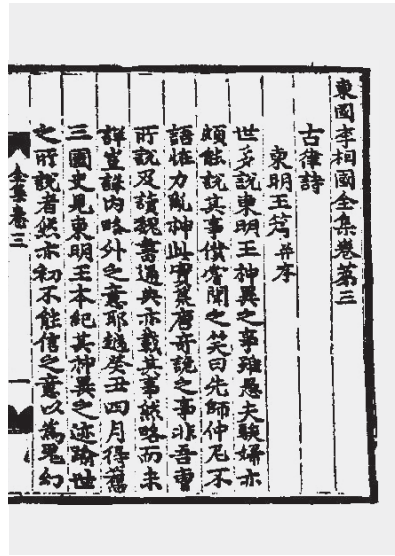 東國李相國全集卷第三
古律詩
東明王篇 并序
世多說東明王神異之事雖愚夫騃婦亦
頗能說其事僕嘗聞之笑曰先師仲尼不
語怪力亂神此實荒唐奇詭之事非吾曹
所說及讀魏書通典亦載其事然略而未
詳豈詳內略外之意耶越癸丑四月得舊
三國史見東明王本紀其神異之迹踰世
之所說者然亦初不能信之意以爲鬼幻
全集卷三
一